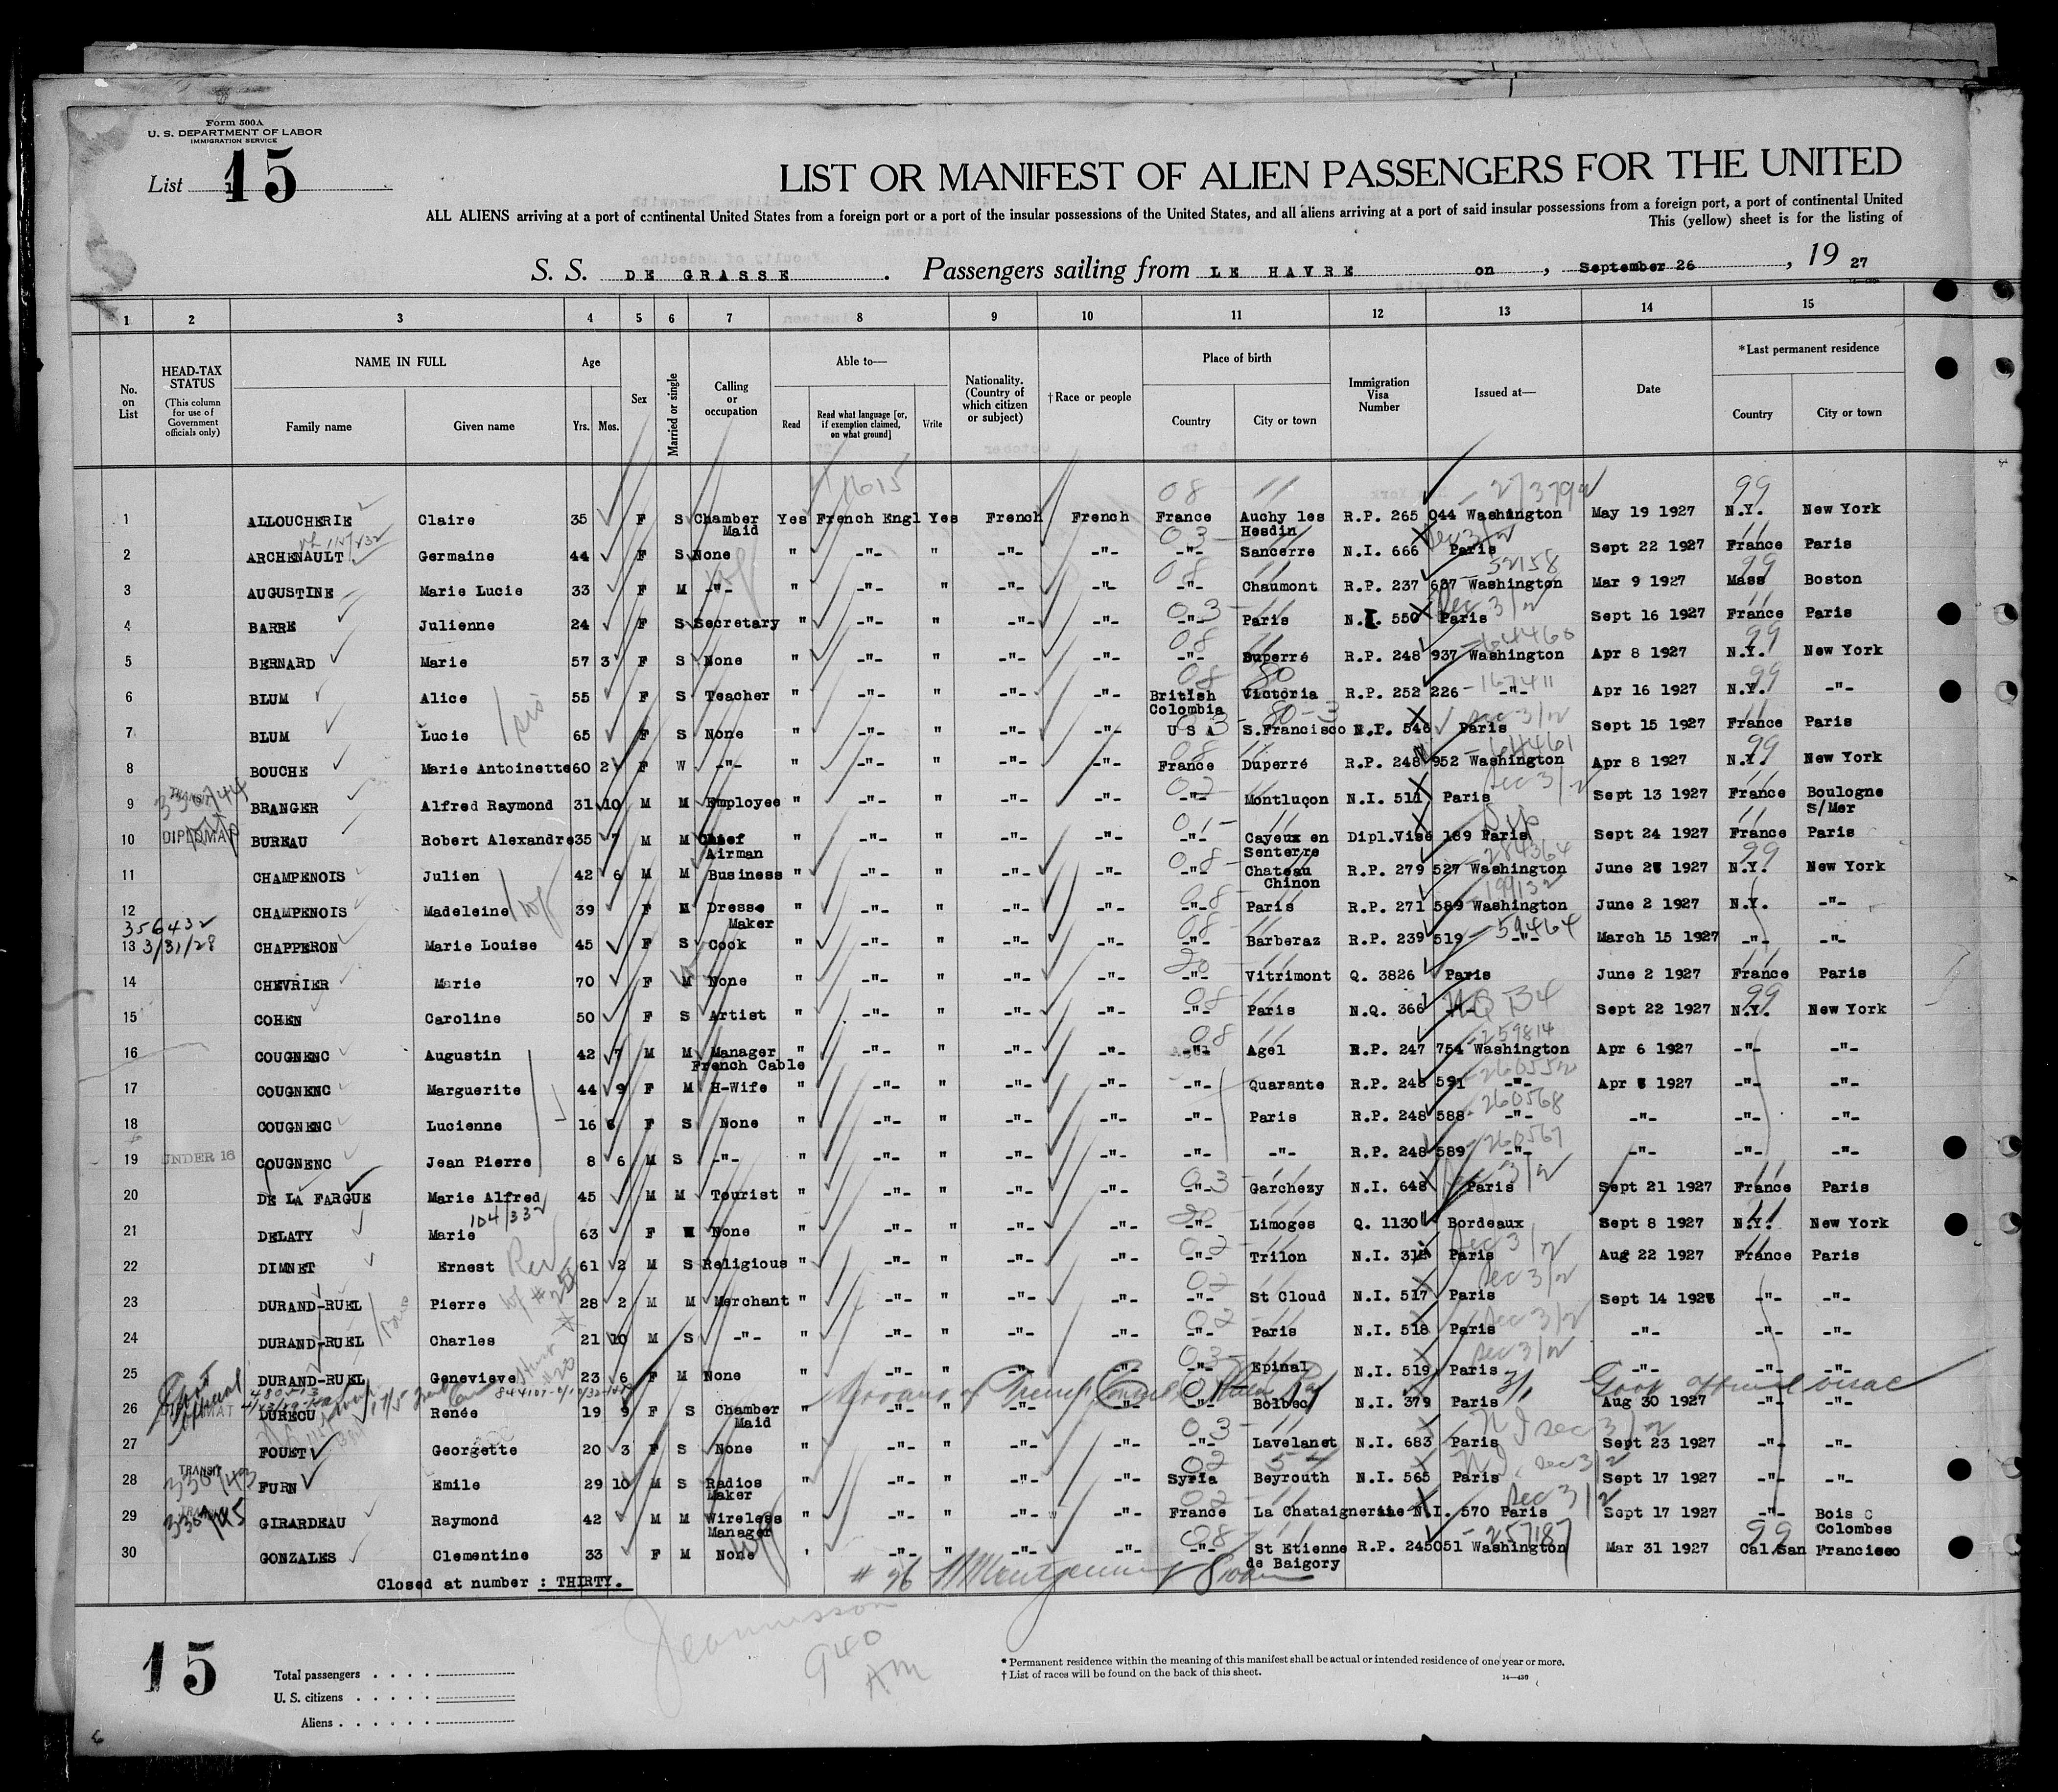 Form 500A
U. S. DEPARTMENT OF LABOR
IMMIGRATION SERVICE
List 15
LIST OR MANIFEST OF ALIEN PASSENGERS FOR THE UNITED
ALL ALIENS arriving at a port of continental United States from a foreign port or a port of the insular possessions of the United States, and all aliens arriving at a port of said insular possessions from a foreign port, a port of continental United
This (yellow) sheet is for the listing of
S. S. DE GRASSE . Passengers sailing from LE HAVRE on , September 26 , 19 27
1 2 3 4 5 6 7 8 9 10 11 12 13 14 15
No. on List
HEAD-TAX STATUS (This column for use of Government officials only)
NAME IN FULL Family name Given name
Age Yrs. Mos.
Sex
Married or single
Calling or occupation
Able to— Read Read what language [or, if exemption claimed, on what ground] Write
Nationality. (Country of which citizen or subject)
† Race or people
Place of birth Country City or town
Immigration Visa Number
Issued at—
Date
*Last permanent residence Country City or town
1 ALLOUCHERIE Claire 35 F S Chamber Maid Yes French Engl Yes French French France Auchy les Hesdin R.P. 265 044 Washington May 19 1927 N.Y. New York
2 ARCHENAULT Germaine 44 F S None " -"- " -"- -"- -"- Sancerre N.I. 666 Paris Sept 22 1927 France Paris
3 AUGUSTINE Marie Lucie 33 F M -"- " -"- " -"- -"- -"- Chaumont R.P. 237 637 Washington Mar 9 1927 Mass Boston
4 BARRE Julienne 24 F S Secretary " -"- " -"- -"- -"- Paris N.I. 550 Paris Sept 16 1927 France Paris
5 BERNARD Marie 57 3 F S None " -"- " -"- -"- -"- Duperré R.P. 248 937 Washington Apr 8 1927 N.Y. New York
6 BLUM Alice 55 F S Teacher " -"- " -"- -"- British Colombia Victoria R.P. 252 226 -"- Apr 16 1927 N.Y. -"-
7 BLUM Lucie 65 F S None " -"- " -"- -"- U S A S.Francisco N.I. 546 Paris Sept 15 1927 France Paris
8 BOUCHE Marie Antoinette 60 2 F W -"- " -"- " -"- -"- France Duperré R.P. 248 952 Washington Apr 8 1927 N.Y. New York
9 BRANGER Alfred Raymond 31 10 M M Employee " -"- " -"- -"- -"- Montluçon N.I. 511 Paris Sept 13 1927 France Boulogne S/Mer
10 DIPLOMAT BUREAU Robert Alexandre 35 7 M M Chief Airman " -"- " -"- -"- -"- Cayeux en Senterre Dipl.Visé 189 Paris Sept 24 1927 France Paris
11 CHAMPENOIS Julien 42 6 M M Business " -"- " -"- -"- -"- Chateau Chinon R.P. 279 527 Washington June 1927 N.Y. New York
12 CHAMPENOIS Madeleine 39 F M Dresse Maker " -"- " -"- -"- -"- Paris R.P. 271 589 Washington June 2 1927 N.Y. -"-
356432
13 3/31/28 CHAPPERON Marie Louise 45 F S Cook " -"- " -"- -"- -"- Barberaz R.P. 239 519 -"- 59464 March 15 1927 -"- -"-
14 CHEVRIER Marie 70 F M None " -"- " -"- -"- -"- Vitrimont Q. 3826 Paris June 2 1927 France Paris
15 COHEN Caroline 50 F S Artist " -"- " -"- -"- -"- Paris N.Q. 366 -"- Sept 22 1927 N.Y. New York
16 COUGNENC Augustin 42 7 M M Manager French Cable " -"- " -"- -"- -"- Agel R.P. 247 754 Washington 259814 Apr 6 1927 -"- -"-
17 COUGNENC Marguerite 44 9 F M H-Wife " -"- " -"- -"- -"- Quarante R.P. 248 591 -"- 260552 Apr 1927 -"- -"-
18 COUGNENC Lucienne 16 F S None " -"- " -"- -"- -"- Paris R.P. 248 588 -"- 260568 -"- -"- -"-
19 UNDER 16 COUGNENC Jean Pierre 8 6 M S -"- " -"- " -"- -"- -"- -"- R.P. 248 589 -"- 260567 -"- -"- -"-
20 DE LA FARGUE Marie Alfred 45 M M Tourist " -"- " -"- -"- -"- Garchezy N.I. 648 Paris Sept 21 1927 France Paris
21 DELATY Marie 63 F W None " -"- " -"- -"- -"- Limoges Q. 1130 Bordeaux Sept 8 1927 N.Y. New York
22 DIMNET Ernest Rev 61 2 M S Religious " -"- " -"- -"- -"- Trilon N.I. Paris Aug 22 1927 France Paris
23 DURAND-RUEL Pierre 28 2 M M Merchant " -"- " -"- -"- -"- St Cloud N.I. 517 Paris Sept 14 1927 -"- -"-
24 DURAND-RUEL Charles 21 10 M S -"- " -"- " -"- -"- -"- Paris N.I. 518 Paris -"- -"- -"-
25 DURAND-RUEL Genevieve 23 6 F M None " -"- " -"- -"- -"- Epinal N.I. 519 Paris -"- -"- -"-
26 DURECU Renée 19 9 F S Chamber Maid " -"- " -"- -"- -"- Bolbec N.I. 379 Paris Aug 30 1927 -"- -"-
27 FOUET Georgette 20 3 F S None " -"- " -"- -"- -"- Lavelanet N.I. 683 Paris Sept 23 1927 -"- -"-
28 TRANSIT FURN Emile 29 10 M S Radios Maker " -"- " -"- -"- Syria Beyrouth N.I. 565 Paris Sept 17 1927 -"- -"-
29 GIRARDEAU Raymond 42 M M Wireless Manager " -"- " -"- -"- France La Chataigneraie N.I. 570 Paris Sept 17 1927 -"- Bois C Colombes
30 GONZALES Clementine 33 F M None ' -"- " -"- -"- -"- St Etienne de Baigory R.P. 245051 Washington 257187 Mar 31 1927 Cal. San Francisco
Closed at number : THIRTY.
940
AM
15
Total passengers . . . .
U. S. citizens . . . . .
Aliens . . . . . .
* Permanent residence within the meaning of this manifest shall be actual or intended residence of one year or more.
† List of races will be found on the back of this sheet.
14—430